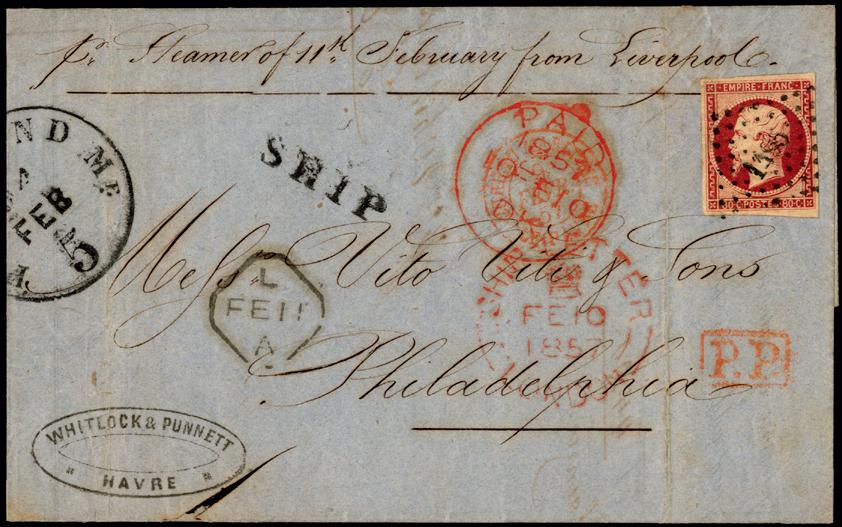 pr. Steamer of 11th February from Liverpool.
EMPIRE FRANC
80 C POSTES 80 C
ND ME
FEB
SHIP
PAID
1857
L
FE 11
A
Messrs Vito Viti & Sons
SHIP LETTER
FE 10
1857
Philadelphia
P.P.
WHITLOCK & PUNNETT
HAVRE